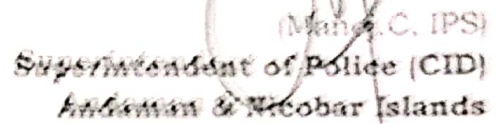 (Manoj.C, IPS)
Superintendent of Police (CID)
Andaman & Nicobar Islands